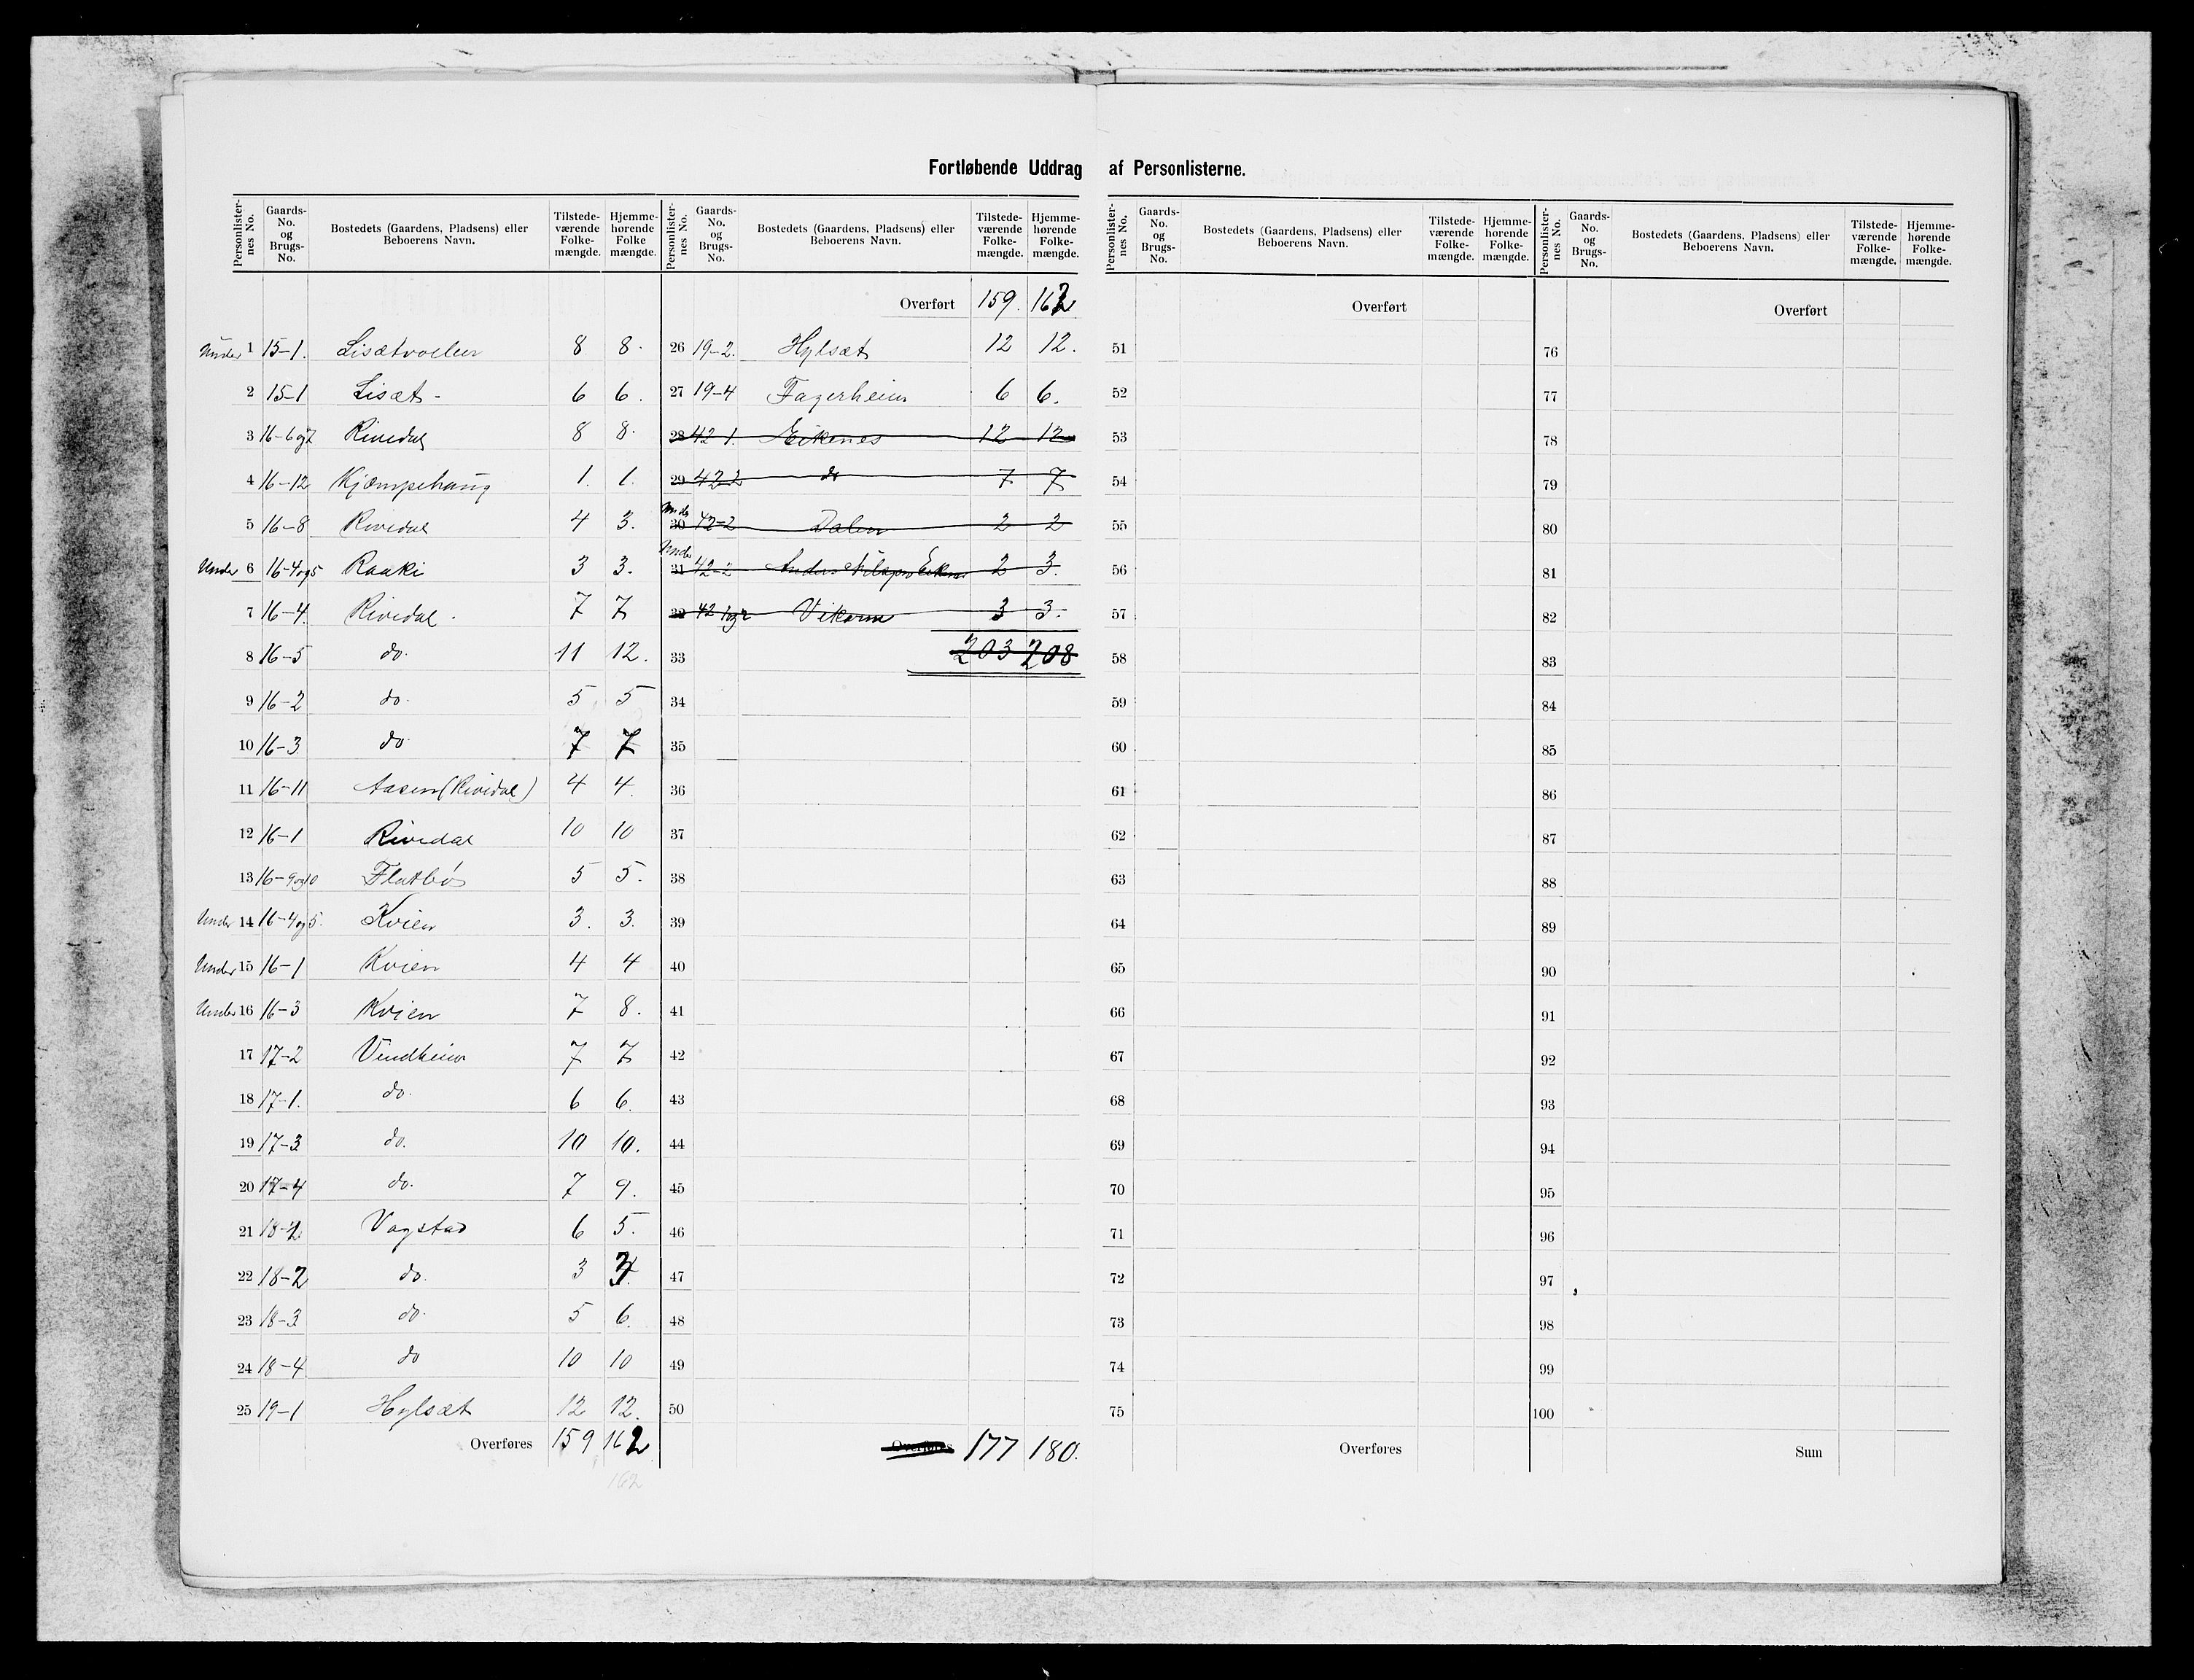 Fortløbende Uddrag af Personlisterne.
Personlister-nes No. Gaards-No. og Brugs-No. Bostedets (Gaardens, Pladsens) eller Beboerens Navn. Tilstede-værende Folke-mængde. Hjemme-hørende Folke mængde.
Under 1 15-1. Lisætvollen 8 8.
2 15-1 Lisæt - 6 6.
3 16-6og7 Rivedal 8 8.
4 16-12 Kjæmpehaug 1. 1.
5 16-8 Rivedal 4 3.
Under 6 16-4og5 Raaki 3 3.
7 16-4. Rivedal. 7 7
8 16-5 do. 11 12.
9 16-2 do. 5 5
10 16-3 do. 7 7
11 16-11 Aasen (Rividal) 4 4.
12 16-1 Rivedal 10 10
13 16-9og10 Flatbø 5 5.
Under 14 16-4og5. Kvien 3. 3.
Under 15 16-1 Kvien 4 4
Under 16 16-3 Kvien 7 8.
17 17-2 Vindheim 7 7
18 17-1. do. 6 6.
19 17-3 do. 10 10.
20 17-4 do. 7 9.
21 18- Vagstad 6 5.
22 18-2 do. 3
23 18-3 do. 5 6.
24 18-4 do 10 10
25 19-1 Hylsæt 12 12.
Overføres 159 162
162
Personlister-nes No. Gaards-No. og Brugs-No. Bostedets (Gaardens, Pladsens) eller Beboerens Navn. Tilstede-værende Folke-mængde. Hjemme-hørende Folke-mængde.
Overført 159. 162
26 19-2. Hylsæt 12 12.
27 19-4 Fagerheim 6 6.
28 42-1. Eikenes 12 12
29 42-2 do 7 7
Under 30 42-2 Dalen 2 2
Under 31 42-2 Anders 2 3.
32 42 1og2 3 3.
33 203 208
34
35
36
37
38
39
40
41
42
43
44
45
46
47
48
49
50
Overføres 177 180.
Personlister-nes No. Gaards-No. og Brugs-No. Bostedets (Gaardens, Pladsens) eller Beboerens Navn. Tilstede-værende Folke-mængde. Hjemme-hørende Folke-mængde.
Overført
51
52
53
54
55
56
57
58
59
60
61
62
63
64
65
66
67
68
69
70
71
72
73
74
75
Overføres
Personlister-nes No. Gaards-No. og Brugs-No. Bostedets (Gaardens, Pladsens) eller Beboerens Navn. Tilstede-værende Folke-mængde. Hjemme-hørende Folke-mængde.
Overført
76
77
78
79
80
81
82
83
84
85
86
87
88
89
90
91
92
93
94
95
96
97
98
99
100
Sum